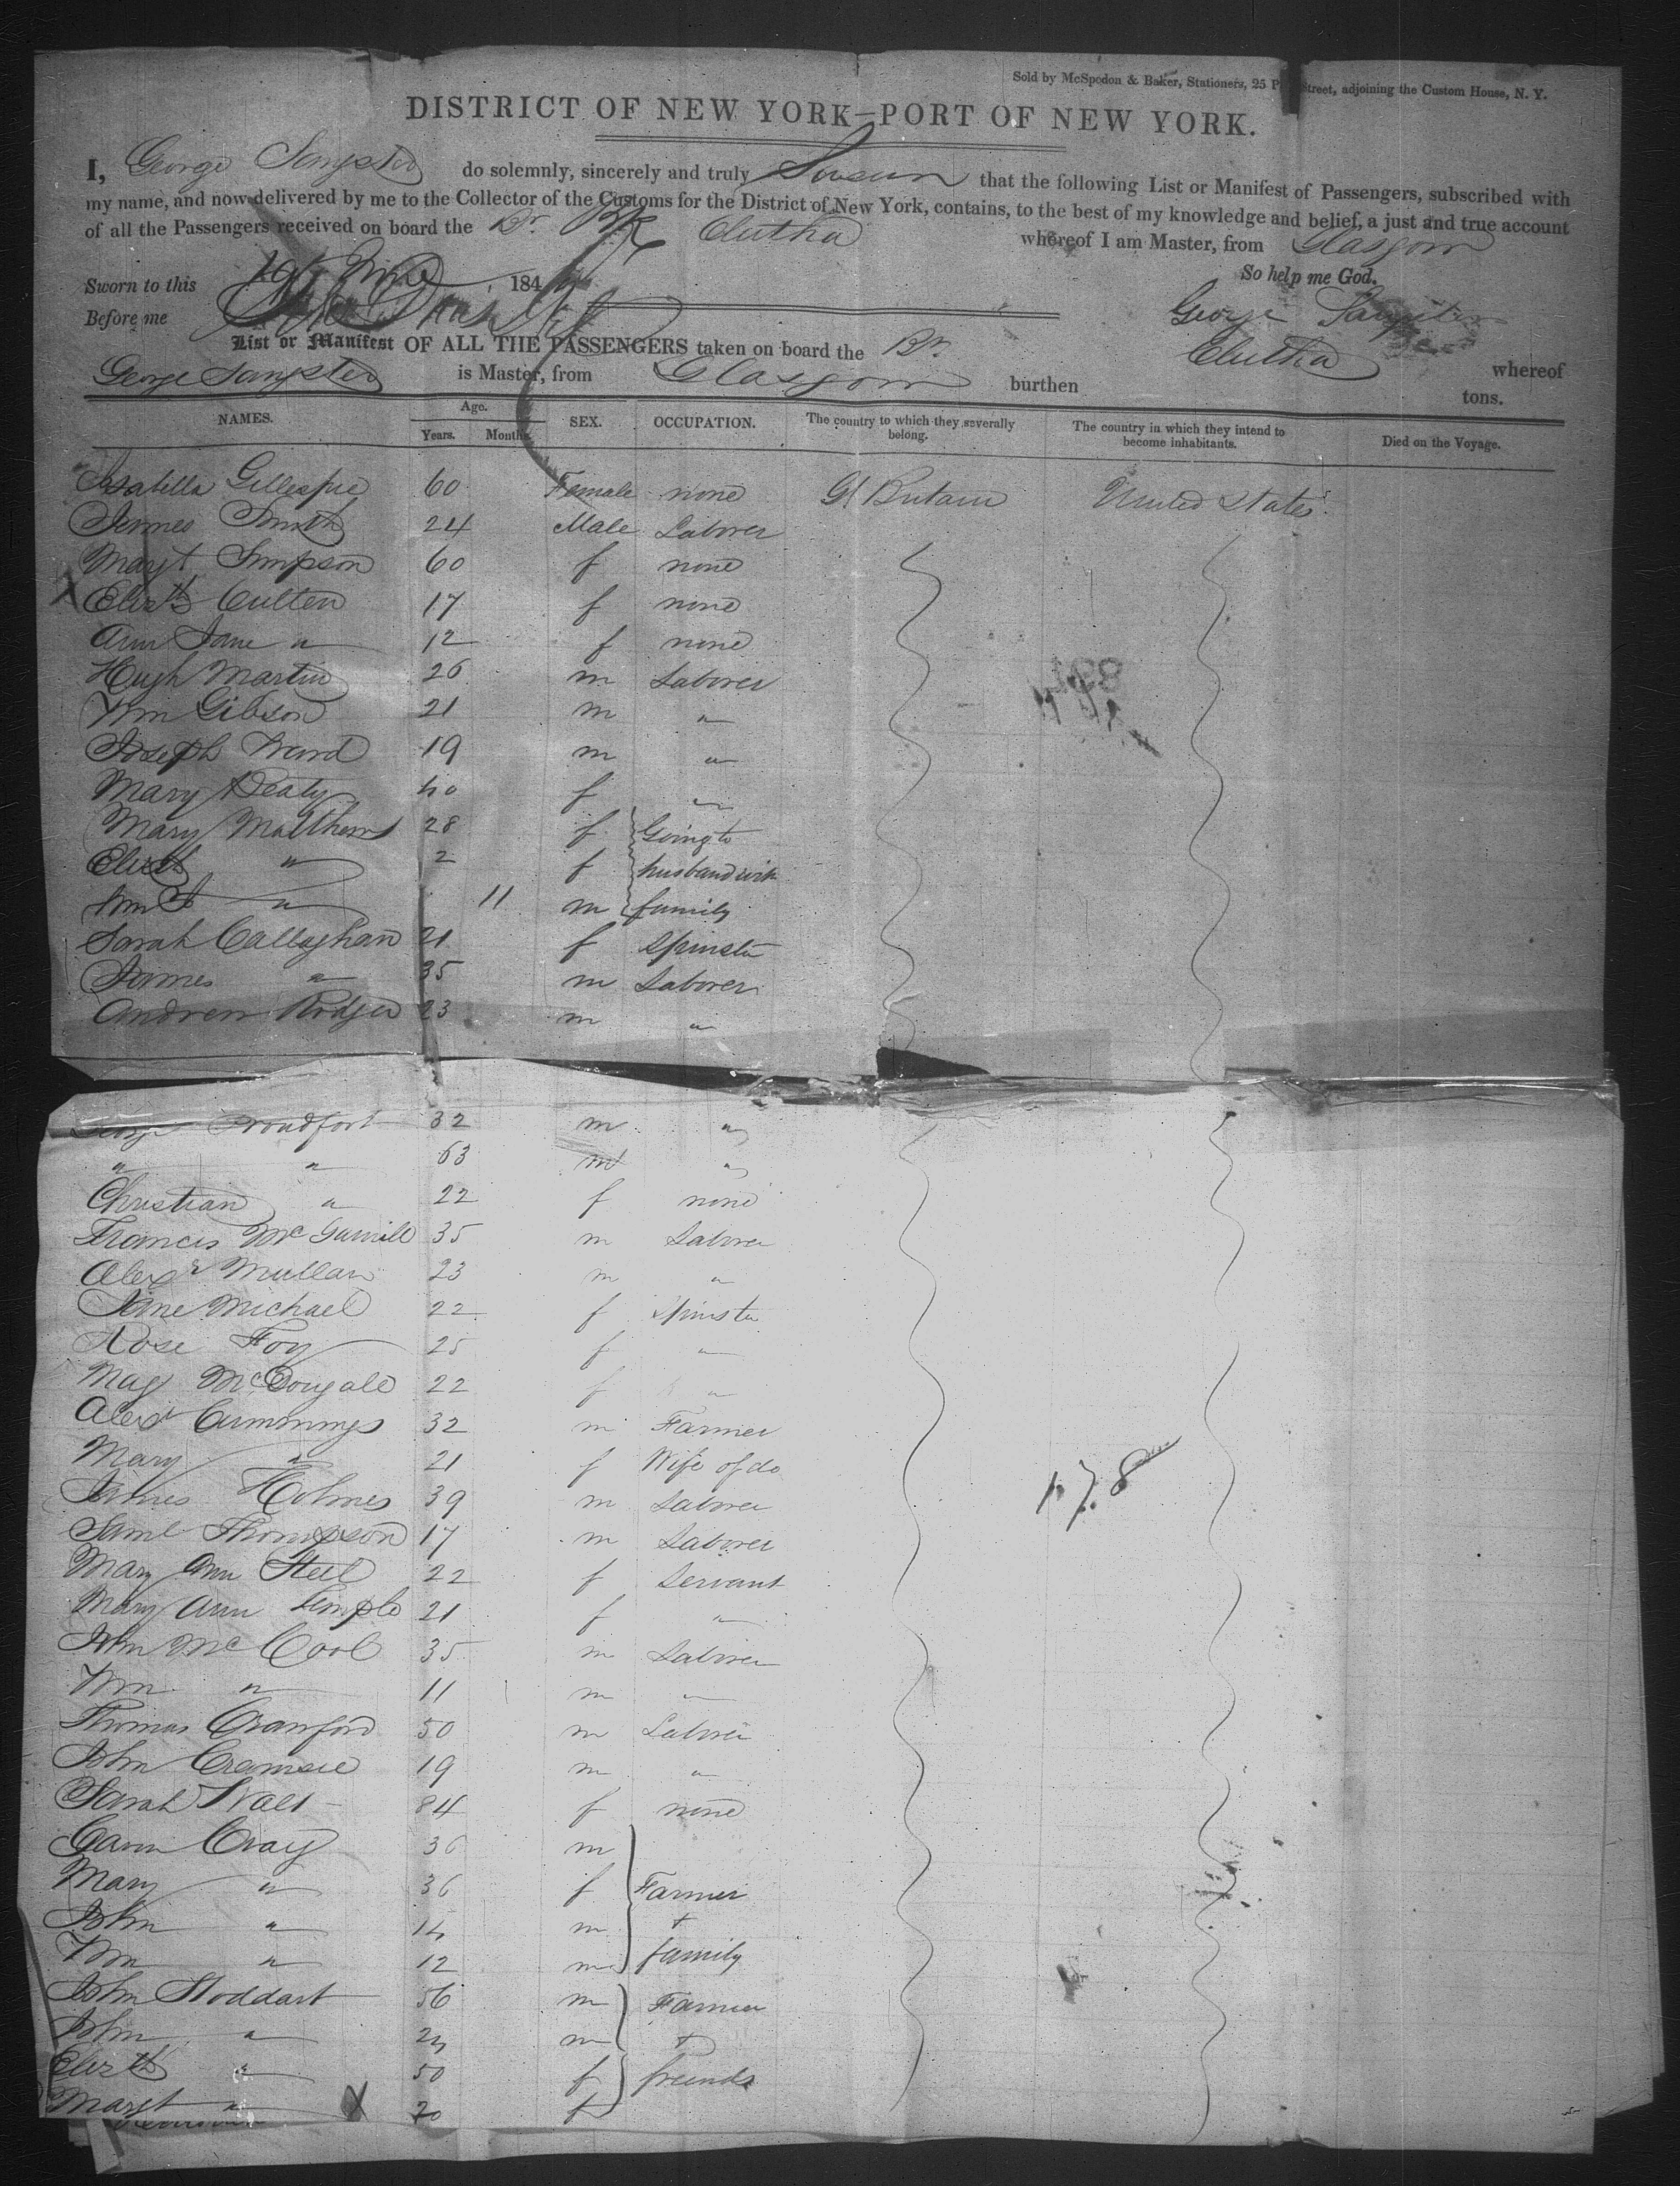 Sold by McSpedon & Baker, Stationers, 25 P Street, adjoining the Custom House, N. Y.
DISTRICT OF NEW YORK–PORT OF NEW YORK.
I, George Sangster do solemnly, sincerely and truly Swear that the following List or Manifest of Passengers, subscribed with
my name, and now delivered by me to the Collector of the Customs for the District of New York, contains, to the best of my knowledge and belief, a just and true account
of all the Passengers received on board the Br. Bk Clutha whereof I am Master, from Glasgow
So help me God.
Sworn to this 184
Before me George Sangster
List or Manifest OF ALL THE PASSENGERS taken on board the Br. Clutha whereof
George Sangster is Master, from Glasgow burthen tons.
NAMES. Age. Years. Months. SEX. OCCUPATION. The country to which they severally belong. The country in which they intend to become inhabitants. Died on the Voyage.
Isabella Gillespie 60 Female none Gt Britain United States
James Smith 24 Male Laborer
Margt Simpson 60 f none
Elizth Culten 17 f none
Ann Jane " 12 f none
Hugh Martin 26 m Laborer
Wm Gibson 21 m "
Joseph Ward 19 m "
Mary Beaty 40 f "
Mary Matthews 28 f Going to
Elizth " 2 f husband with
Wm " 11 m family
Sarah Callaghan 21 f Spinster
James " 35 m Laborer
Andrew Rodger 23 m "
George Proudfoot 32 m "
" " 63 m "
Christian " 22 f none
Francis Mc 35 m Laborer
Alexr Mullan 23 m "
Jane Michael 22 f Spinster
Rose Foy 25 f "
Mag McDougall 22 f "
Alexr Cummings 32 m Farmer
Mary " 21 f Wife of do
James Holmes 39 m Laborer
Saml Thompson 17 m Laborer
Mary Ann Steel 22 f Servant
Mary Ann Temple 21 f "
John McCool 35 m Laborer
Wm " 11 m "
Thomas Crawford 50 m Laborer
John Cramsie 19 m "
Sarah Watt 84 f none
Gavin Craig 36 m
Mary " 36 f Farmer
John " 14 m +
Wm " 12 m family
John Stoddart 56 m Farmer
John " 24 m +
Elizth " 50 f friends
Margt " 20 f
178